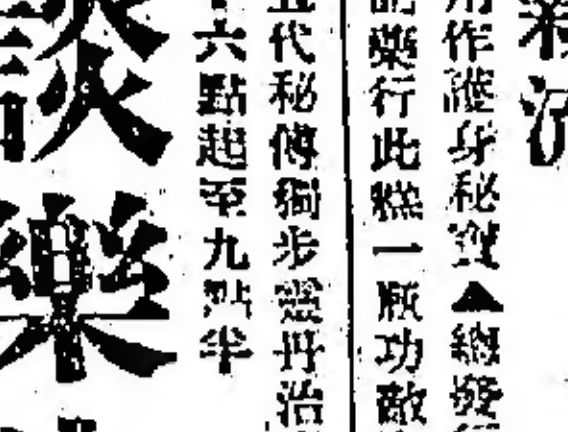 作護身秘寶▲總發
藥行此糕一功敵
代秘傳獨步靈丹治
六點起至九點半
談樂